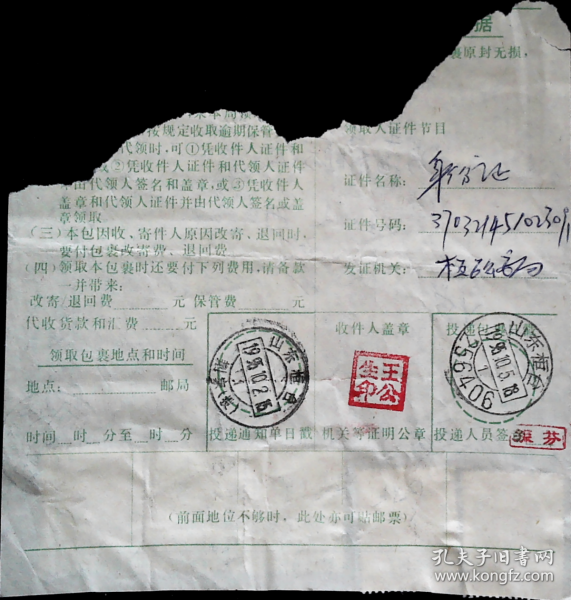 据
裹原封无损,
按规定收取逾期保管
领取人证件节目
代领时,可①凭收件人证件和
②凭收件人证件和代领人证
由代领人签名和盖章,或③凭收件人
盖章和代领人证件并由代领人签名或盖
章领取
证件名称: 身份证
(三)本包因收、寄件人原因改寄、退回时,
要付包裹改寄费、退回费
证件号码:
(四)领取本包裹时还要付下列费用,请备款
一并带来:
发证机关: 桓台公安局
改寄/退回费 元 保管费 元
代收货款和汇费 元
领取包裹地点和时间
地点: 邮局
时间 时 分至 时 分
山东桓台
1995.10.2.16
投递通知单日戳
收件人盖章
王公
印
机关等证明公章
投递包裹日戳
山东桓台
1995.10.5.18
256406
投递人员签章
振芬
(前面地位不够时,此处亦可贴邮票)
孔夫子旧书网
www.kongfz.com